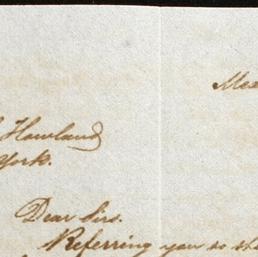 Mex
Howland
York.
Dear Sirs.
Referring you to the